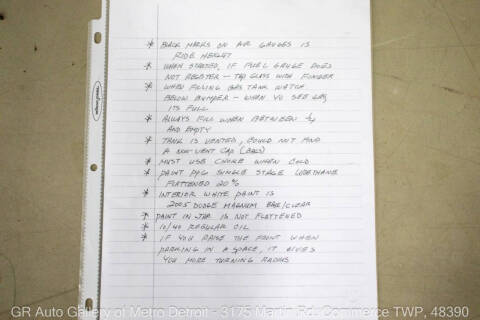 * BLACK MARKS ON AIR GAUGES IS
RIDE HEIGHT
* WHEN STARTED, IF FUEL GAUGE DOES
NOT REGISTER - TAP GLASS WITH FINGER
* WHEN FILLING GAS TANK WATCH
BELOW BUMPER - WHEN YU SEE GAS
ITS FULL
* ALWAYS FILL WHEN BETWEEN 1/4
AND EMPTY
* TANK IS VENTED, COULD NOT FIND
A NON-VENT CAP
* MUST USE CHOKE WHEN COLD
* PAINT PPG SINGLE STAGE URETHANE
FLATTENED 20%
* INTERIOR WHITE PAINT IS
2005 DODGE MAGNUM BASE/CLEAR
* PAINT IN JAR IS NOT FLATTENED
* 10/40 REGULAR OIL
* IF YOU RAISE THE FRONT WHEN
PARKING IN A SPACE, IT GIVES
YOU MORE TURNING RADIUS
GR Auto Gallery of Metro Detroit - 3175 Martin Rd. Commerce TWP, 48390